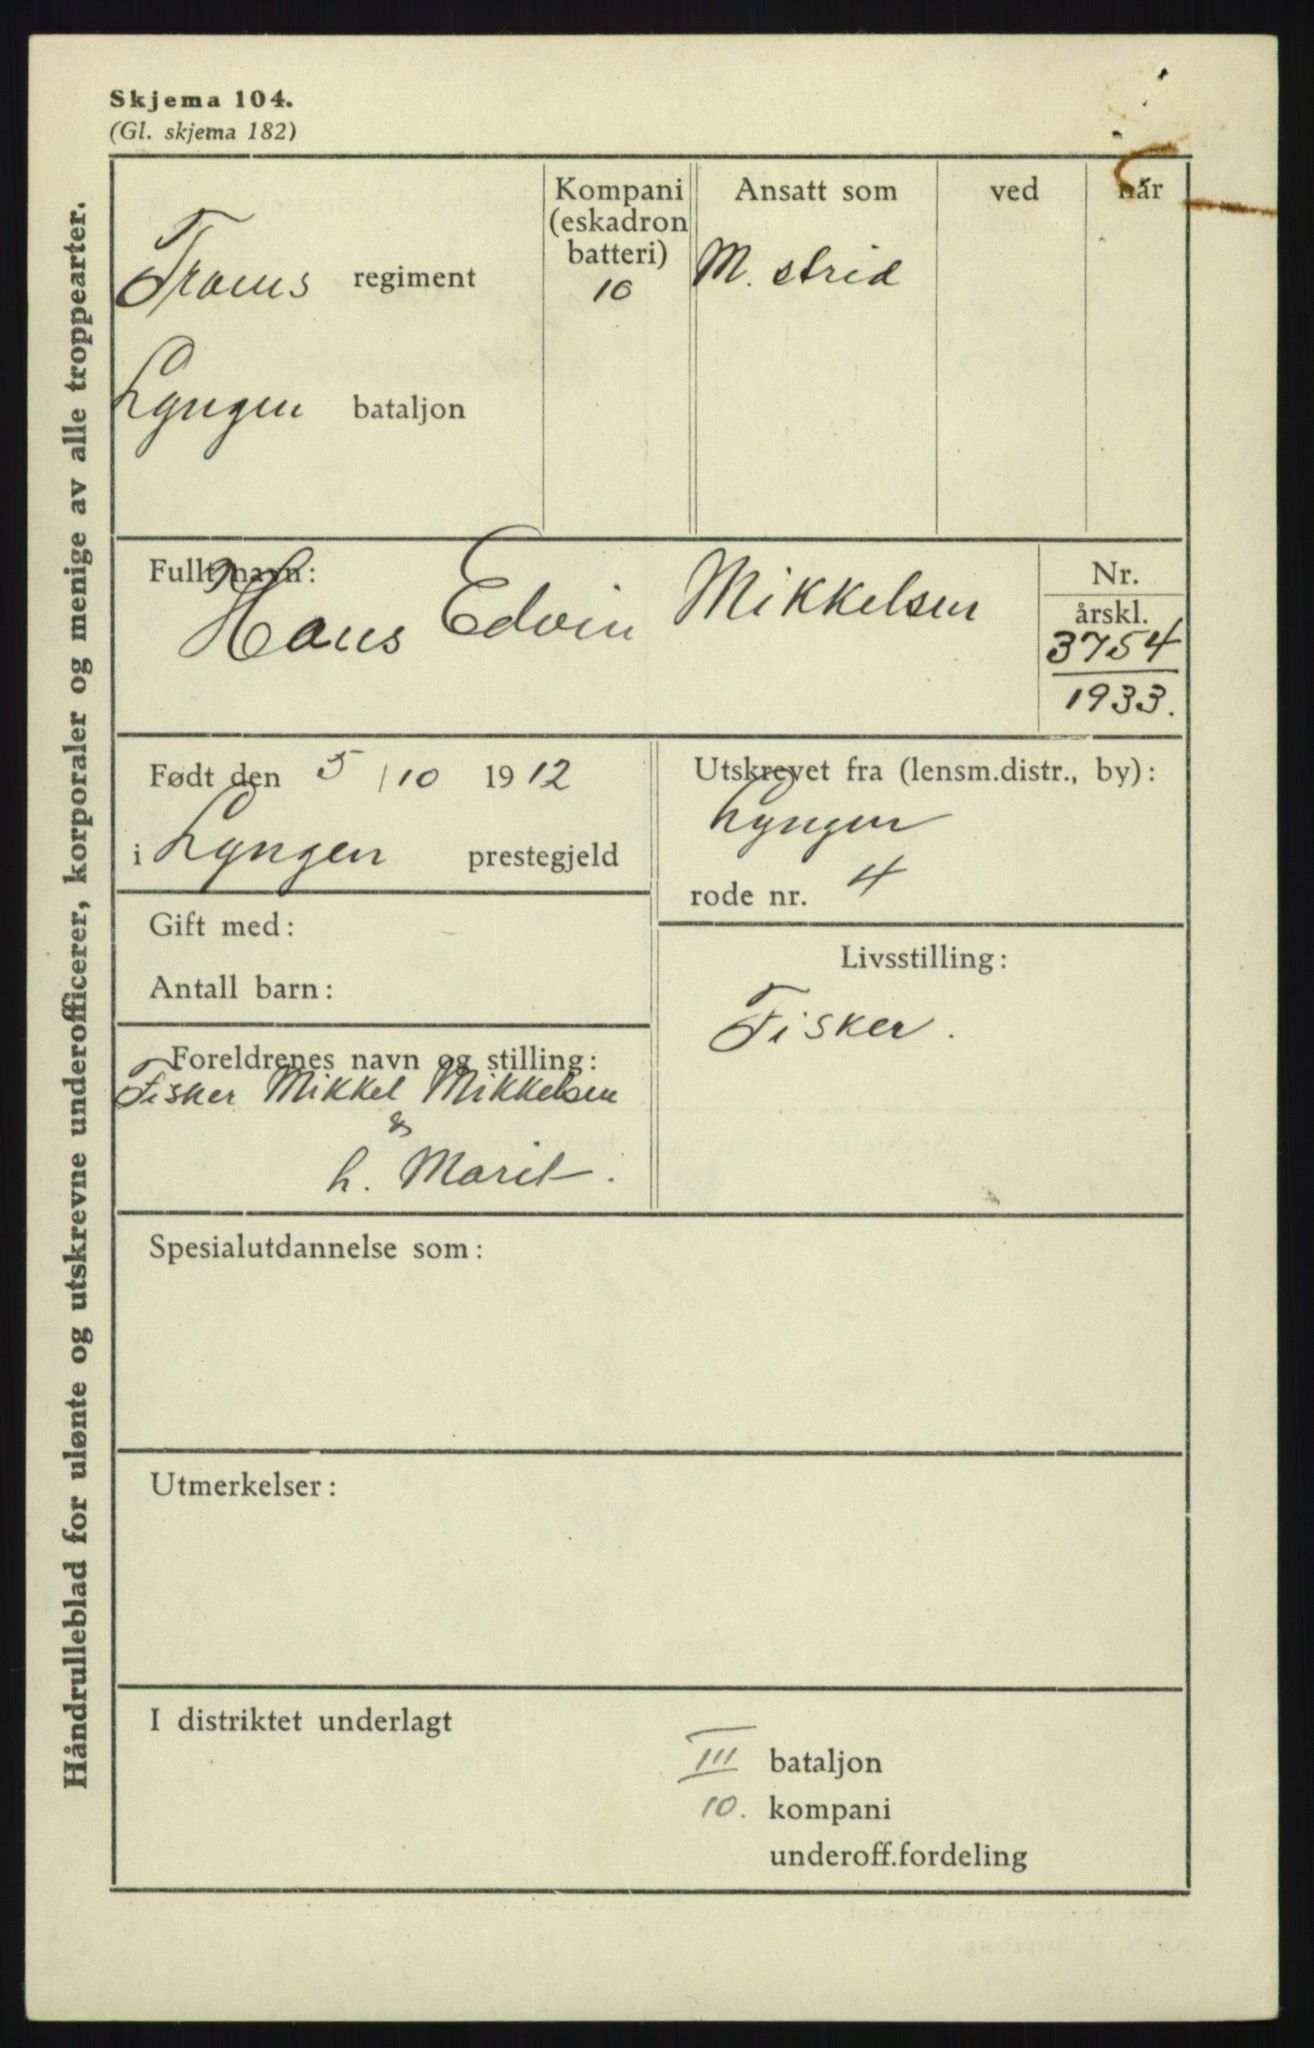 Skjema 104.
(Gl. skjema 182)
Håndrulleblad for ulønte og utskrevne underofficerer, korporaler og menige av alle troppearter.
Troms regiment
Lyngen bataljon
Kompani
(eskadron
batteri)
10
Ansatt som
M. strid
ved
når
Fullt navn:
Hans Edvin Mikkelsen
Nr.
årskl.
3754
1933.
Født den 5/10 1912
i Lyngen prestegjeld
Utskrevet fra (lensm.distr., by):
Lyngen
rode nr. 4
Gift med:
Antall barn:
Livsstilling:
Fisker.
Foreldrenes navn og stilling:
Fisker Mikkel Mikkelsen
&
h. Marit.
Spesialutdannelse som:
Utmerkelser:
I distriktet underlagt
III bataljon
10. kompani
underoff.fordeling